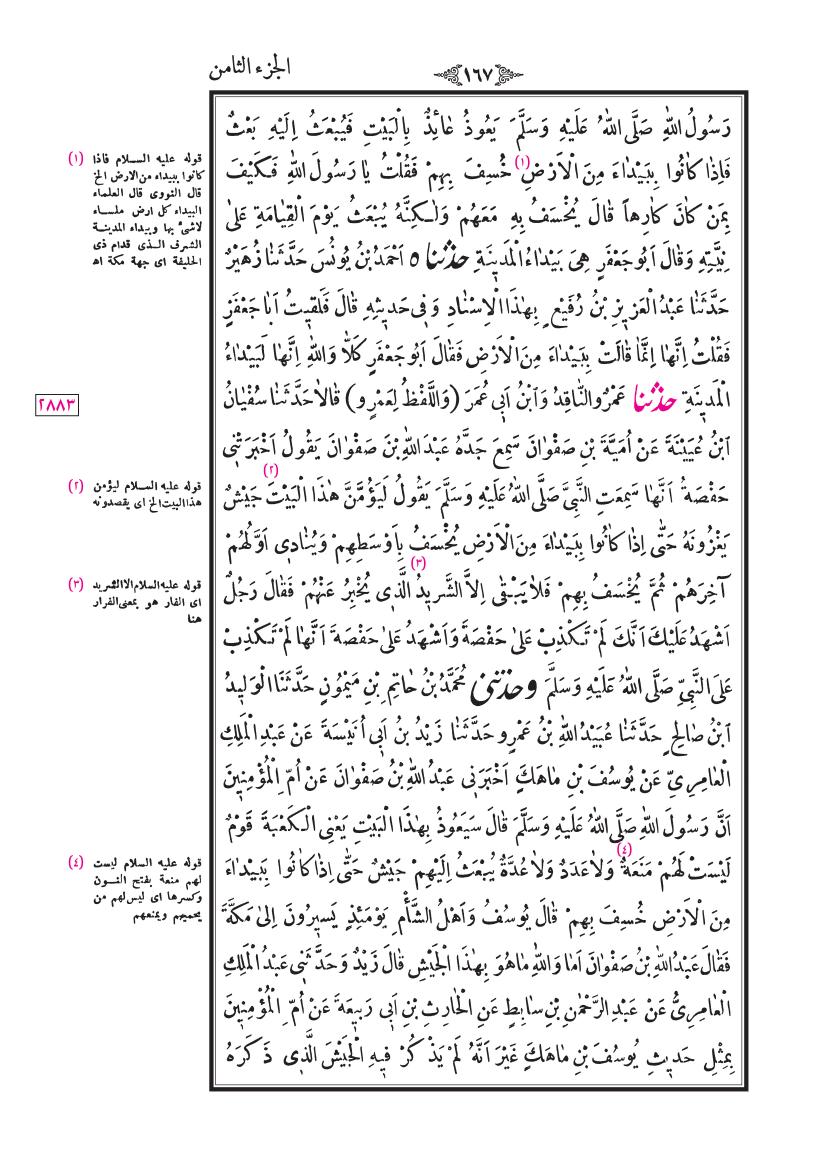 الجزء الثامن
١٦٧
رَسُولُ اللهِ صَلَّى اللهُ عَلَيْهِ وَسَلَّمَ يَعُوذُ عَائِذٌ بِالْبَيْتِ فَيُبْعَثُ اِلَيْهِ بَعْثٌ
فَاِذَا كَانُوا بِبَيْدَاءَ مِنَ الْاَرْضِ (١) خُسِفَ بِهِمْ فَقُلْتُ يَا رَسُولَ اللهِ فَكَيْفَ
بِمَنْ كَانَ كَارِهاً قَالَ يُخْسَفُ بِهِ مَعَهُمْ وَلٰكِنَّهُ يُبْعَثُ يَوْمَ الْقِيَامَةِ عَلَىٰ
نِيَّتِهِ وَقَالَ اَبُو جَعْفَرٍ هِىَ بَيْدَاءُ الْمَدِينَةِ حَدَّثَنَا ٥ اَحْمَدُ بْنُ يُونُسَ حَدَّثَنَا زُهَيْرٌ
حَدَّثَنَا عَبْدُ الْعَزِيزِ بْنُ رُفَيْعٍ بِهٰذَا الْاِسْنَادِ وَفِى حَدِيثِهِ قَالَ فَلَقِيتُ اَبَا جَعْفَرٍ
فَقُلْتُ اِنَّهَا اِنَّمَا قَالَتْ بِبَيْدَاءَ مِنَ الْاَرْضِ فَقَالَ اَبُو جَعْفَرٍ كَلَّا وَاللهِ اِنَّهَا لَبَيْدَاءُ
الْمَدِينَةِ حَدَّثَنَا عَمْرٌو النَّاقِدُ وَابْنُ اَبِى عُمَرَ (وَاللَّفْظُ لِعَمْرٍو) قَالَا حَدَّثَنَا سُفْيَانُ
ابْنُ عُيَيْنَةَ عَنْ اُمَيَّةَ بْنِ صَفْوَانَ سَمِعَ جَدَّهُ عَبْدَ اللهِ بْنَ صَفْوَانَ يَقُولُ اَخْبَرَتْنِى
حَفْصَةُ اَنَّهَا سَمِعَتِ النَّبِىَّ صَلَّى اللهُ عَلَيْهِ وَسَلَّمَ يَقُولُ (٢) لَيَؤُمَّنَّ هٰذَا الْبَيْتَ جَيْشٌ
يَغْزُونَهُ حَتَّى اِذَا كَانُوا بِبَيْدَاءَ مِنَ الْاَرْضِ يُخْسَفُ بِاَوْسَطِهِمْ وَيُنَادِى اَوَّلُهُمْ
آخِرَهُمْ ثُمَّ يُخْسَفُ بِهِمْ فَلَا يَبْقَى اِلَّا الشَّرِيدُ (٣) الَّذِى يُخْبِرُ عَنْهُمْ فَقَالَ رَجُلٌ
اَشْهَدُ عَلَيْكَ اَنَّكَ لَمْ تَكْذِبْ عَلَىٰ حَفْصَةَ وَاَشْهَدُ عَلَىٰ حَفْصَةَ اَنَّهَا لَمْ تَكْذِبْ
عَلَى النَّبِىِّ صَلَّى اللهُ عَلَيْهِ وَسَلَّمَ وَحَدَّثَنِى مُحَمَّدُ بْنُ حَاتِمِ بْنِ مَيْمُونٍ حَدَّثَنَا الْوَلِيدُ
ابْنُ صَالِحٍ حَدَّثَنَا عُبَيْدُ اللهِ بْنُ عَمْرٍو حَدَّثَنَا زَيْدُ بْنُ اَبِى اُنَيْسَةَ عَنْ عَبْدِ الْمَلِكِ
الْعَامِرِىِّ عَنْ يُوسُفَ بْنِ مَاهَكَ اَخْبَرَنِى عَبْدُ اللهِ بْنُ صَفْوَانَ عَنْ اُمِّ الْمُؤْمِنِينَ
اَنَّ رَسُولَ اللهِ صَلَّى اللهُ عَلَيْهِ وَسَلَّمَ قَالَ سَيَعُوذُ بِهٰذَا الْبَيْتِ يَعْنِى الْكَعْبَةَ قَوْمٌ
لَيْسَتْ لَهُمْ مَنَعَةٌ (٤) وَلَا عَدَدٌ وَلَا عُدَّةٌ يُبْعَثُ اِلَيْهِمْ جَيْشٌ حَتَّى اِذَا كَانُوا بِبَيْدَاءَ
مِنَ الْاَرْضِ خُسِفَ بِهِمْ قَالَ يُوسُفُ وَاَهْلُ الشَّأْمِ يَوْمَئِذٍ يَسِيرُونَ اِلَىٰ مَكَّةَ
فَقَالَ عَبْدُ اللهِ بْنُ صَفْوَانَ اَمَا وَاللهِ مَا هُوَ بِهٰذَا الْجَيْشِ قَالَ زَيْدٌ وَحَدَّثَنِى عَبْدُ الْمَلِكِ
الْعَامِرِىُّ عَنْ عَبْدِ الرَّحْمٰنِ بْنِ سَابِطٍ عَنِ الْحَارِثِ بْنِ اَبِى رَبِيعَةَ عَنْ اُمِّ الْمُؤْمِنِينَ
بِمِثْلِ حَدِيثِ يُوسُفَ بْنِ مَاهَكَ غَيْرَ اَنَّهُ لَمْ يَذْكُرْ فِيهِ الْجَيْشَ الَّذِى ذَكَرَهُ
(١) قوله عليه السلام فاذا
كانوا ببيداء من الارض الخ
قال النووى قال العلماء
البيداء كل ارض ملساء
لاشئ بها وبيداء المدينة
الشرف الذى قدام ذى
الحليفة اى جهة مكة اه
٢٨٨٣
(٢) قوله عليه السلام ليؤمن
هذا البيت الخ اى يقصدونه
(٣) قوله عليه السلام الا الشريد
اى الفار هو بمعنى الفرار
هنا
(٤) قوله عليه السلام ليست
لهم منعة بفتح النون
وكسرها اى ليس لهم من
يحميهم ويمنعهم